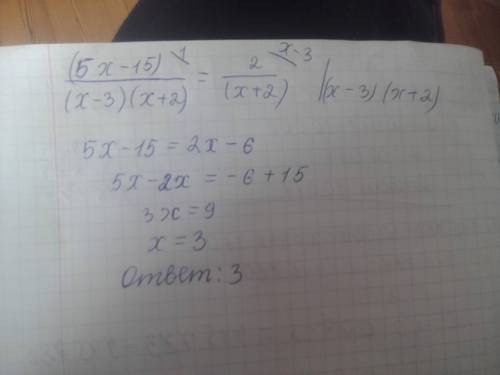 (5x-15)\1 / (x-3)(x+2) = 2\x-3 / (x+2) |(x-3)(x+2)
5x-15=2x-6
5x-2x=-6+15
3x=9
x=3
Ответ: 3